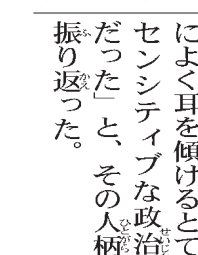 によく耳を傾けるとて
センシティブな政治
だった」と、その人柄
振り返った。